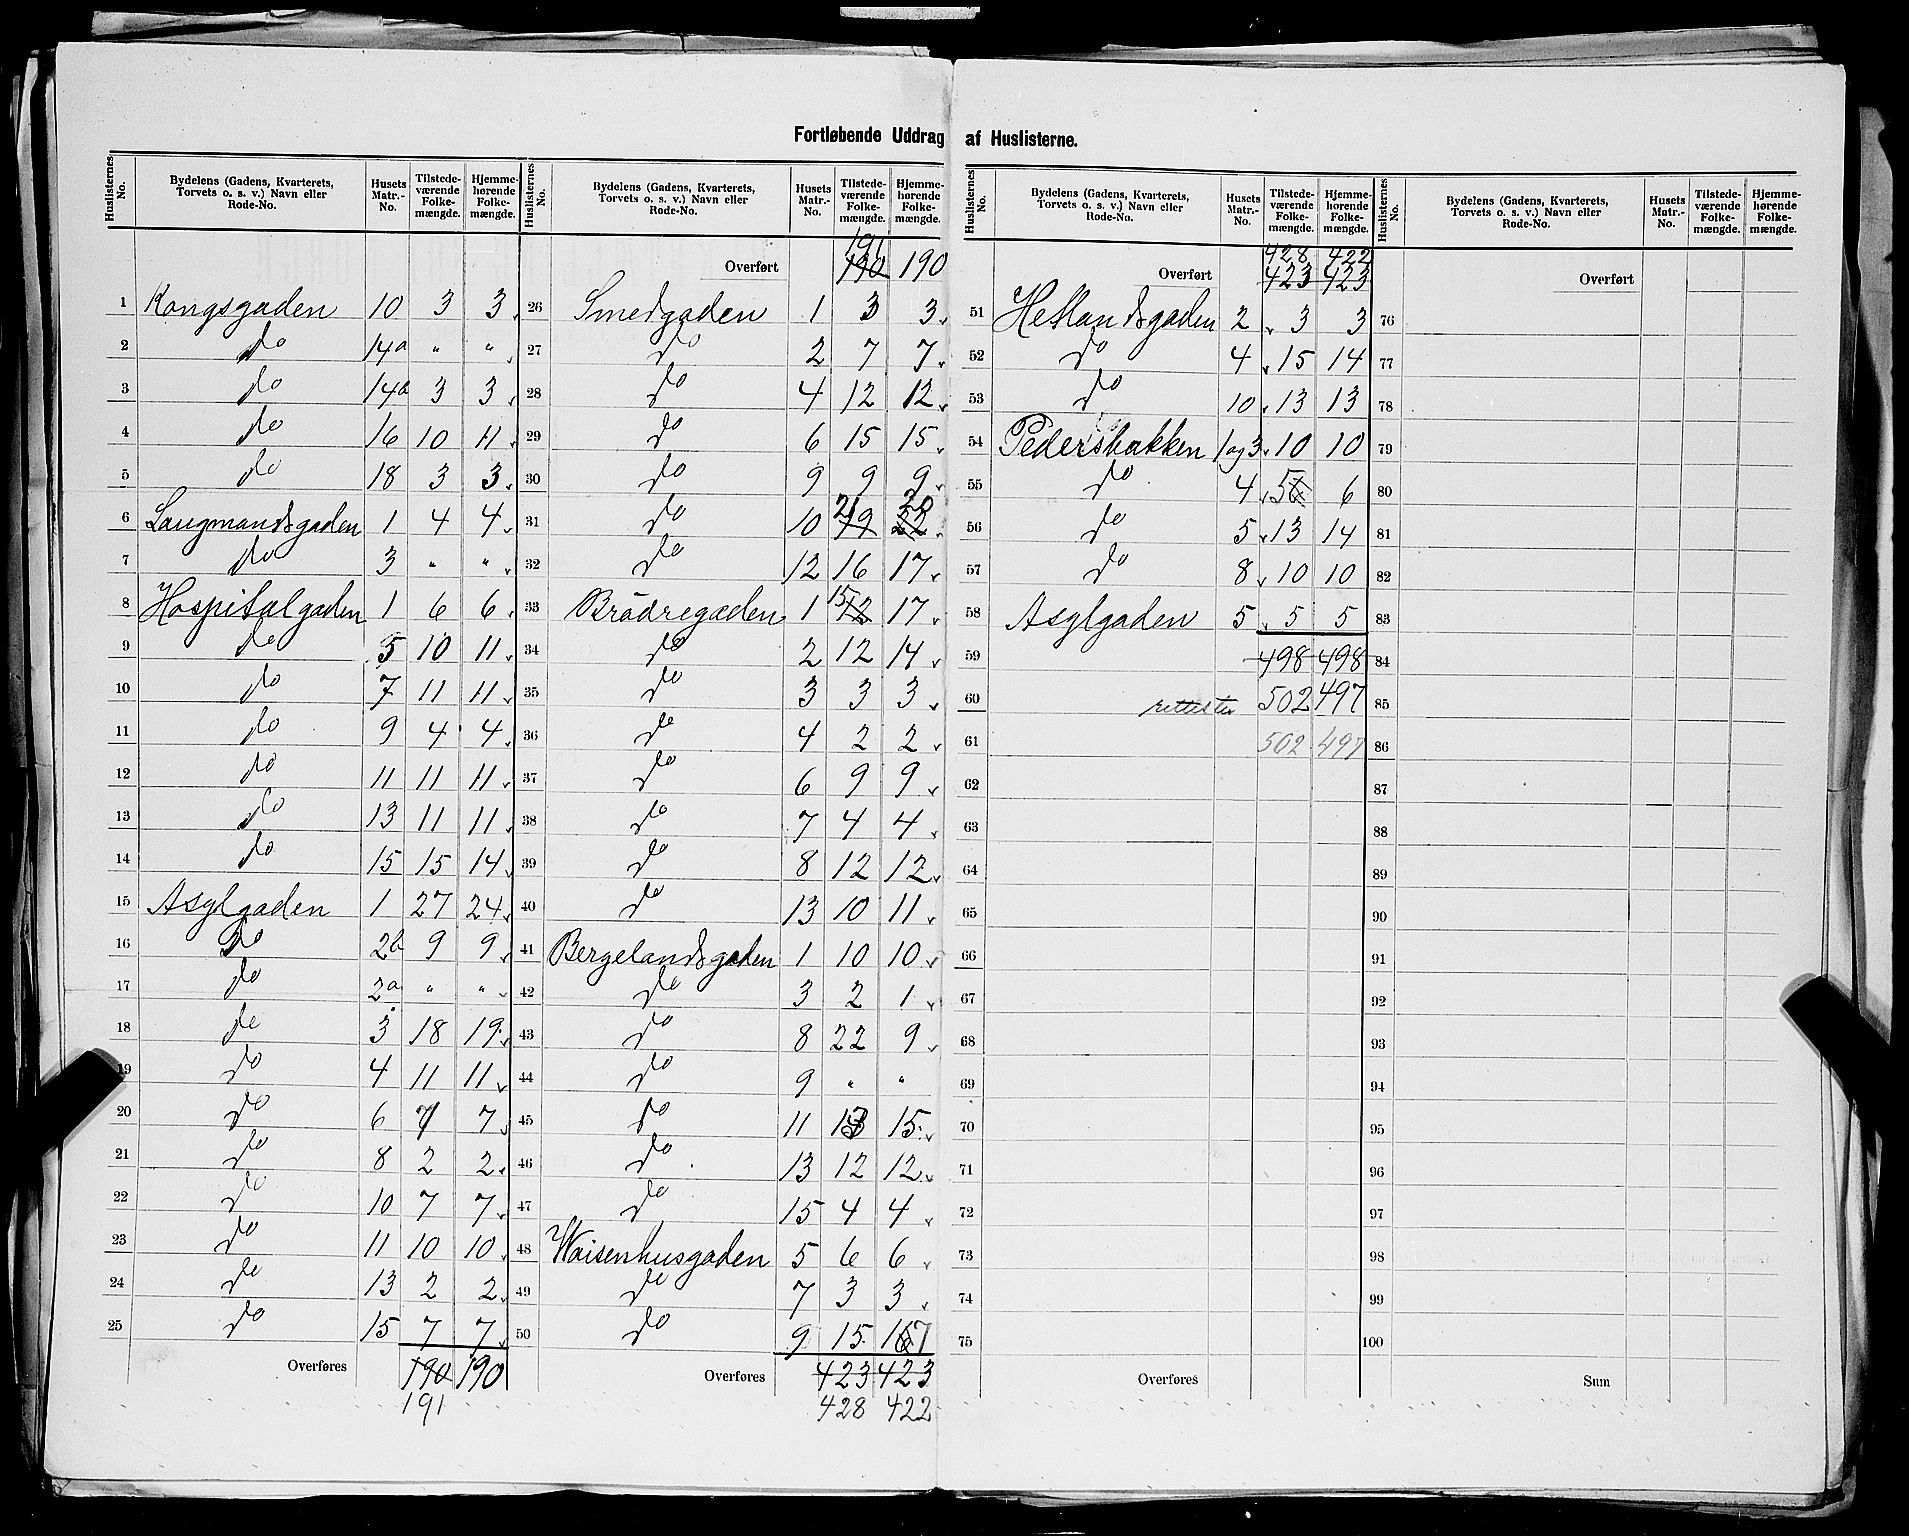 Fortløbende Uddrag af Huslisterne.
Huslisternes No. | Bydelens (Gadens, Kvarterets, Torvets o. s. v.) Navn eller Rode-No. | Husets Matr.-No. | Tilstede-værende Folke-mængde. | Hjemme-hørende Folke-mængde.
1 Kongsgaden 10 3 3
2 do 14a " "
3 do 14b 3 3
4 do 16 10 11
5 do 18 3 3
6 Laugmandsgaden 1 4 4
7 do 3 " "
8 Hospitalgaden 1 6 6
9 do 5 10 11
10 do 7 11 11
11 do 9 4 4
12 do 11 11 11
13 do 13 11 11
14 do 15 15 14
15 Asylgaden 1 27 24
16 do 2b 9 9
17 do 2a " "
18 do 3 18 19
19 do 4 11 11
20 do 6 7 7
21 do 8 2 2
22 do 10 7 7
23 do 11 10 10
24 do 13 2 2
25 do 15 7 7
Overføres 190 190
191
Huslisternes No. | Bydelens (Gadens, Kvarterets, Torvets o. s. v.) Navn eller Rode-No. | Husets Matr.-No. | Tilstede-værende Folke-mængde. | Hjemme-hørende Folke-mængde.
191
Overført 190 190
26 Smedgaden 1 3 3
27 do 2 7 7
28 do 4 12 12
29 do 6 15 15
30 do 9 9 9
31 do 10 21 19 20 22
32 do 12 16 17
33 Brödregaden 1 15 12 17
34 do 2 12 14
35 do 3 3 3
36 do 4 2 2
37 do 6 9 9
38 do 7 4 4
39 do 8 12 12
40 do 13 10 11
41 Bergelandsgaden 1 10 10
42 do 3 2 1
43 do 8 22 9
44 do 9 " "
45 do 11 13 15
46 do 13 12 12
47 do 15 4 4
48 Waisenhusgaden 5 6 6
49 do 7 3 3
50 do 9 15 167
Overføres 423 423
428 422
Huslisternes No. | Bydelens (Gadens, Kvarterets, Torvets o. s. v.) Navn eller Rode-No. | Husets Matr.-No. | Tilstede-værende Folke-mængde. | Hjemme-hørende Folke-mængde.
428 422
Overført 423 423
51 Hetlandsgaden 2 3 3
52 do 4 15 14
53 do 10 13 13
54 Pedersbakken 1 og 3 10 10
55 do 4 56 6
56 do 5 13 14
57 do 8 10 10
58 Asylgaden 5 5 5
59 498 498
60 502 497
61 502 497
62
63
64
65
66
67
68
69
70
71
72
73
74
75
Overføres
Huslisternes No. | Bydelens (Gadens, Kvarterets, Torvets o. s. v.) Navn eller Rode-No. | Husets Matr.-No. | Tilstede-værende Folke-mængde. | Hjemme-hørende Folke-mængde.
Overført
76
77
78
79
80
81
82
83
84
85
86
87
88
89
90
91
92
93
94
95
96
97
98
99
100
Sum